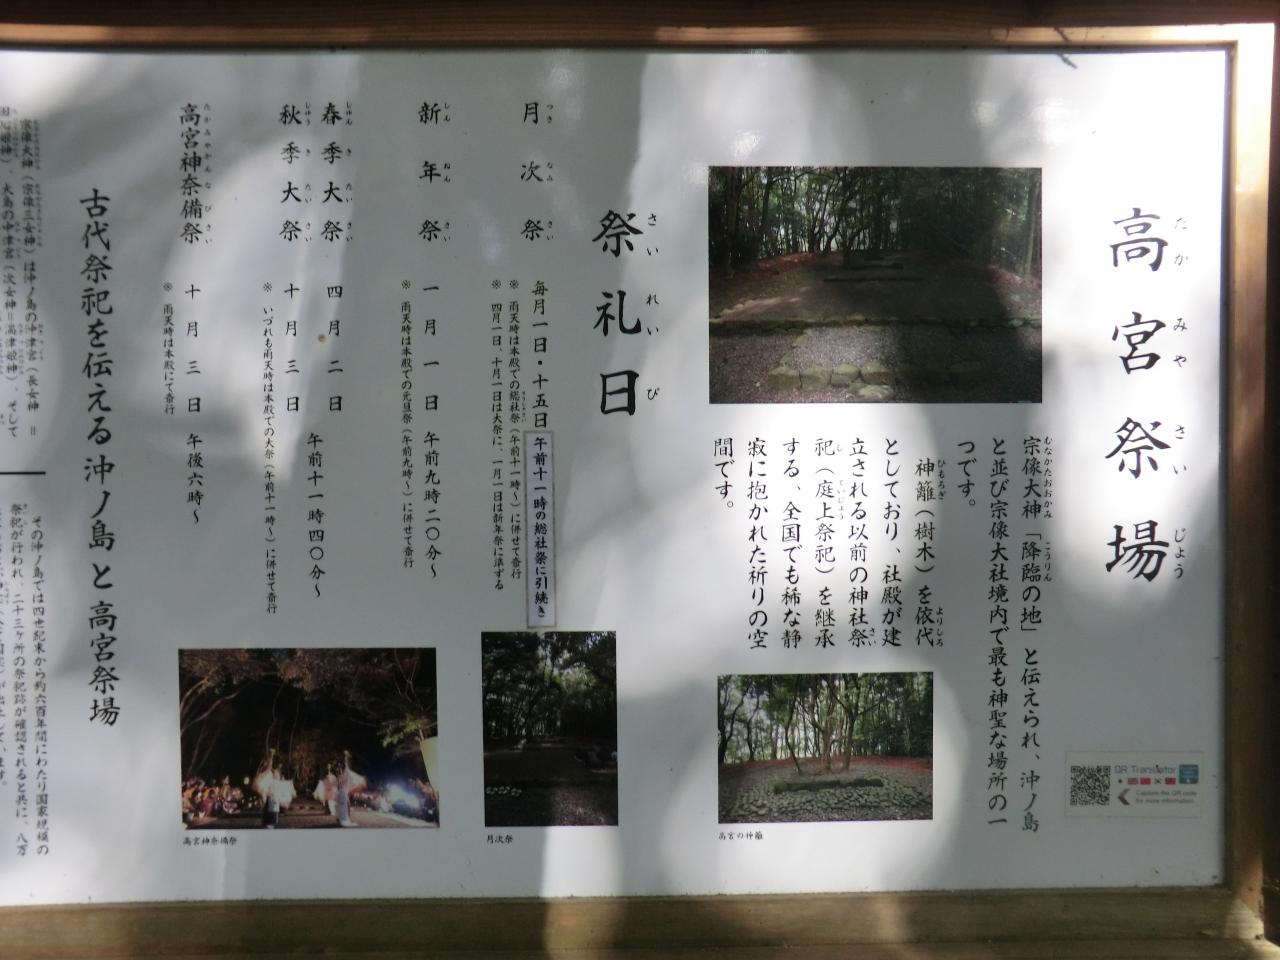 高宮祭場
たかみやさいじょう
宗像大神「降臨の地」と伝えられ、沖ノ島
むなかたおおかみ
こうりん
と並び宗像大社境内で最も神聖な場所の一
つです。
神籬（樹木）を依代
ひもろぎ
よりしろ
としており、社殿が建
立される以前の神社祭
さい
祀（庭上祭祀）を継承
し
ていじょう
する、全国でも稀な静
寂に抱かれた祈りの空
間です。
高宮の神籬
QR Translator
Capture the QR code
for more information.
祭礼日
さいれいび
月次祭
つきなみさい
毎月一日・十五日
午前十一時の総社祭に引続き
※雨天時は本殿での総社祭（午前十一時〜）に併せて斎行
※四月一日、十月一日は大祭に、一月一日は新年祭に準ずる
月次祭
新年祭
しんねんさい
一月一日 午前九時二〇分〜
※雨天時は本殿での元旦祭（午前九時〜）に併せて斎行
春季大祭
しゅんきたいさい
四月二日
秋季大祭
しゅうきたいさい
十月三日
午前十一時四〇分〜
※いづれも雨天時は本殿での大祭（午前十一時〜）に併せて斎行
高宮神奈備祭
たかみやかんなびさい
十月三日 午後六時〜
※雨天時は本殿にて斎行
高宮神奈備祭
古代祭祀を伝える沖ノ島と高宮祭場
宗像大神（宗像三女神）は沖ノ島の沖津宮（長女神＝
大島の中津宮（次女神＝湍津姫神）、そして
その沖ノ島では四世紀末から約六百年間にわたり国家規模の
祭祀が行われ、二十三ヶ所の祭祀跡が確認されると共に、八万